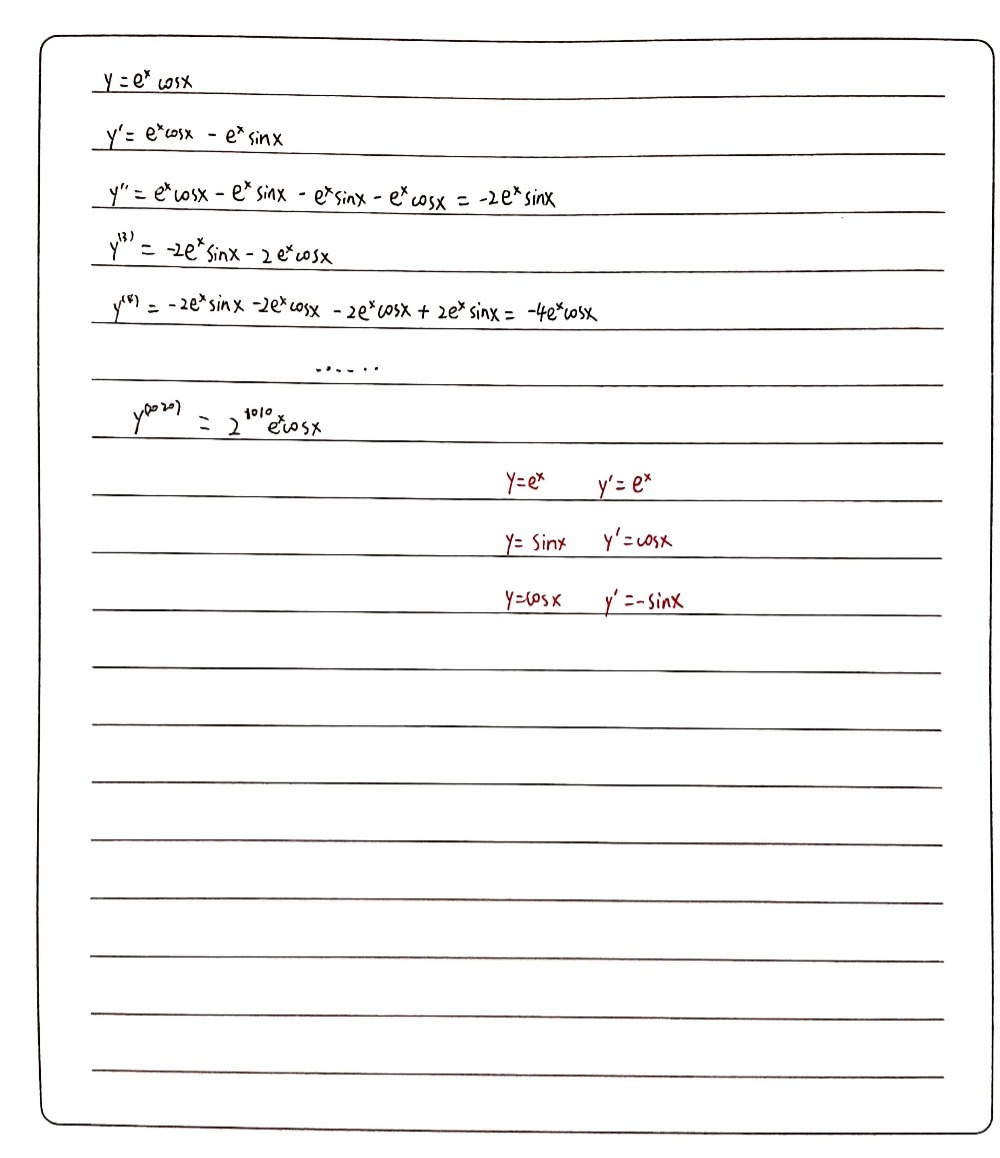 y = eˣ cosx
y′ = eˣcosx - eˣ sinx
y″ = eˣcosx - eˣ sinx - eˣsinx - eˣ cosx = -2eˣ sinx
y⁽³⁾ = -2eˣ sinx - 2eˣcosx
y⁽⁴⁾ = -2eˣ sinx -2eˣ cosx - 2eˣcosx + 2eˣ sinx = -4eˣcosx
......
y⁽²⁰²⁰⁾ = 2¹⁰¹⁰eˣcosx
y=eˣ y′=eˣ
y= sinx y′=cosx
y=cosx y′=-sinx